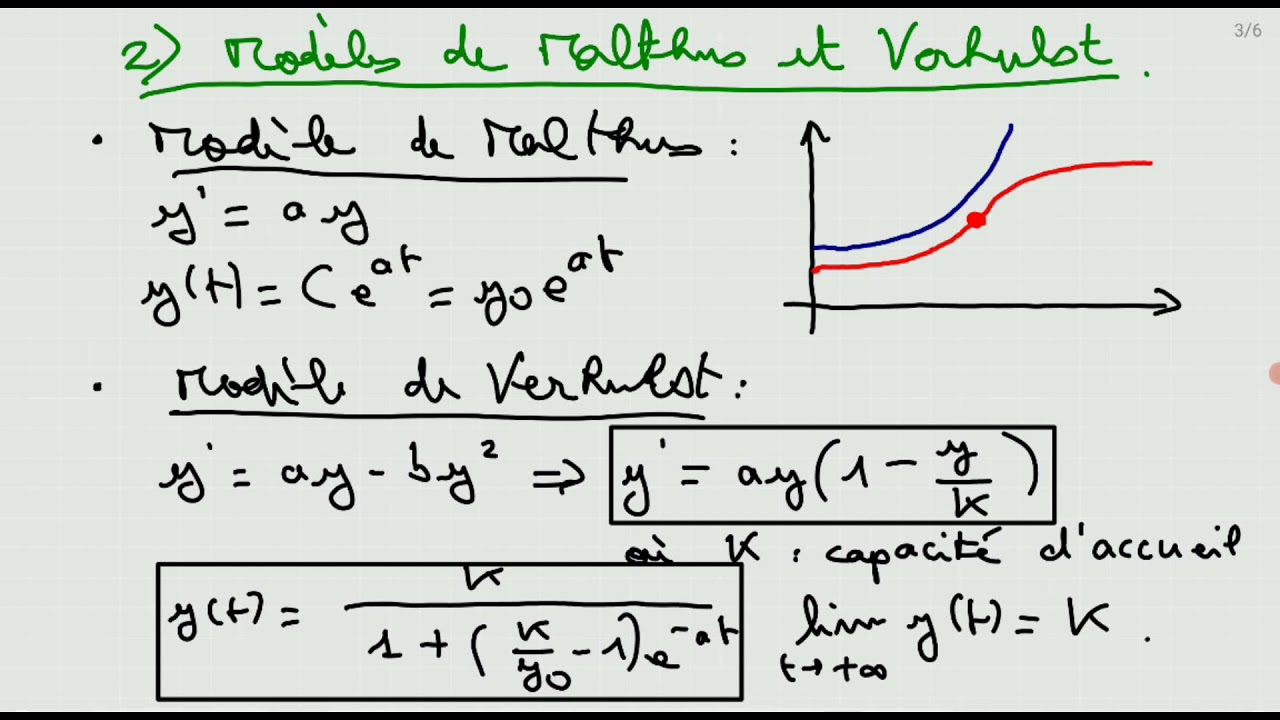 3/6
2) Modèles de Malthus et Verhulst.
• Modèle de Malthus :
y' = ay
y(t) = C e^{at} = y₀ e^{at}
• Modèle de Verhulst :
y' = ay - by² ⇒ y' = ay(1 - y/K)
où K : capacité d'accueil
y(t) = K / (1 + (K/y₀ - 1)e^{-at})
lim_{t→+∞} y(t) = K.